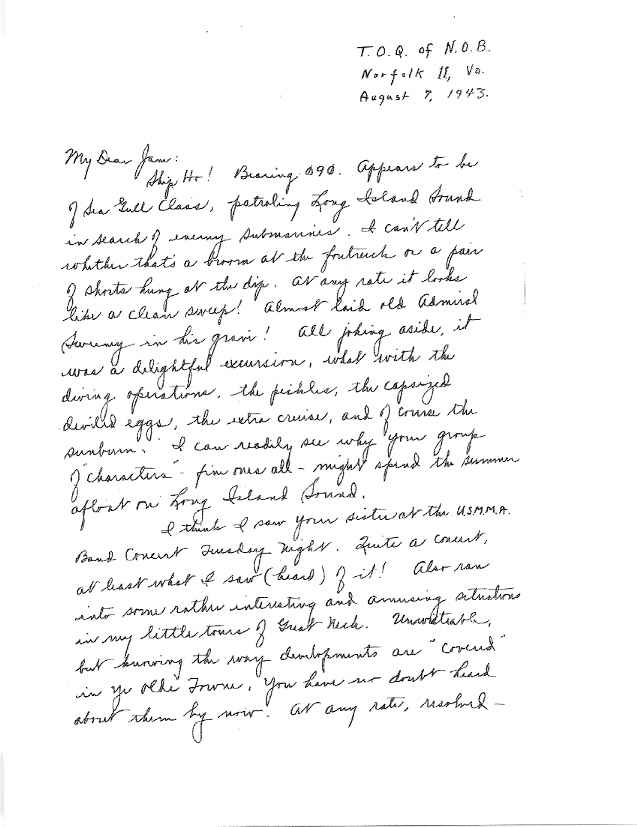 T.O.Q. of N.O.B.
Norfolk 11, Va.
August 7, 1943.
My Dear Jane:
Ship Ho! Bearing 090. Appears to be
of Sea Gull Class, patroling Long Island Sound
in search of enemy submarines. I can't tell
whether that's a broom at the foretruck or a pair
of shorts hung at the dip. At any rate it looks
like a clean sweep! Almost laid old Admiral
in his grave! All joking aside, it
was a delightful excursion, what with the
diving operations, the pickles, the capsized
deviled eggs, the extra cruise, and of course the
sunburn. I can readily see why your group
of "characters" - fine ones all - might spend the summer
afloat on Long Island Sound.
I think I saw your sister at the USMMA.
Band Concert Tuesday night. Quite a concert,
at least what I saw (heard) of it! Also ran
into some rather interesting and amusing situations
in my little tours of Great Neck. Unwritable,
but knowing the way developments are "covered"
in ye olde Towne, you have no doubt heard
about them by now. At any rate, resolved -